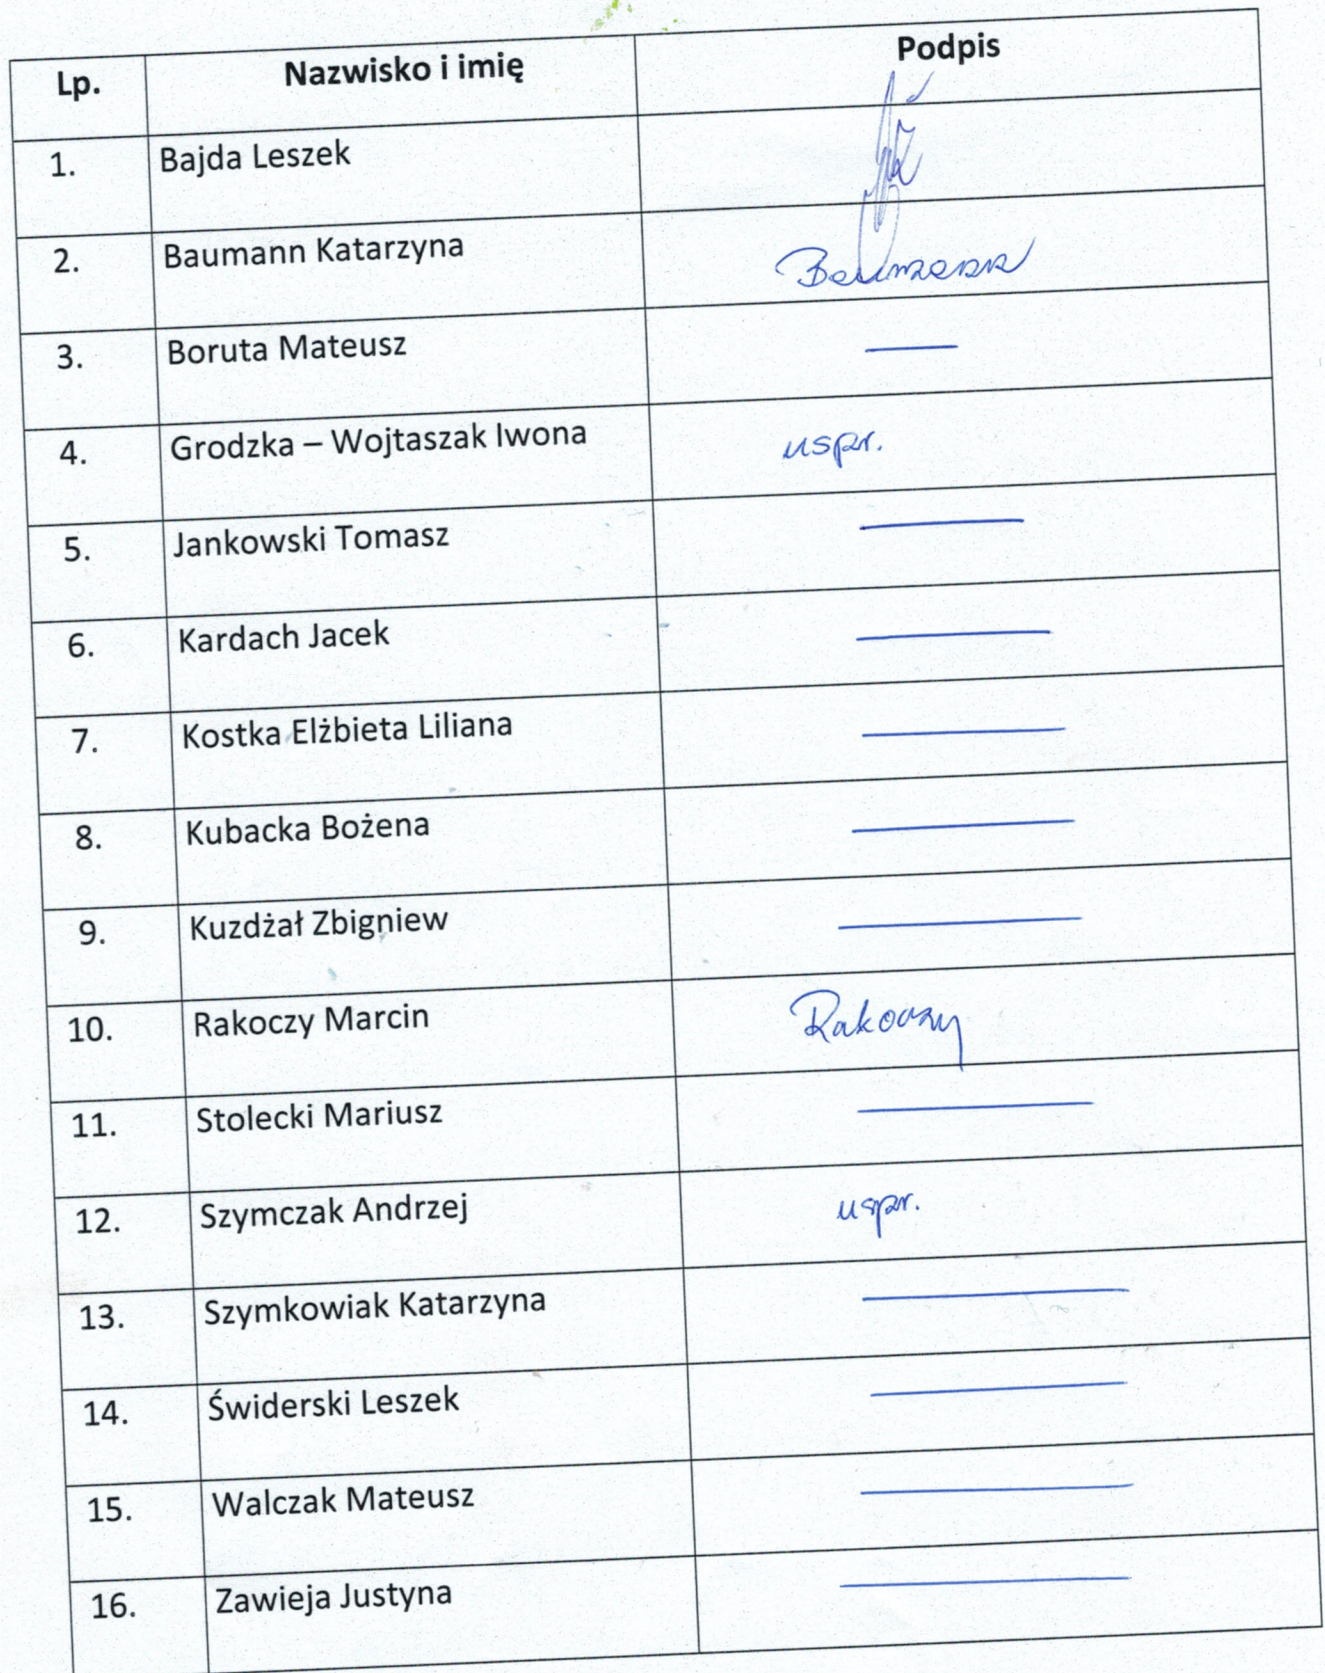 Lp. Nazwisko i imię Podpis
1. Bajda Leszek
2. Baumann Katarzyna Baumann
3. Boruta Mateusz —
4. Grodzka – Wojtaszak Iwona uspr.
5. Jankowski Tomasz —
6. Kardach Jacek —
7. Kostka Elżbieta Liliana —
8. Kubacka Bożena —
9. Kuzdżał Zbigniew —
10. Rakoczy Marcin Rakoczy
11. Stolecki Mariusz —
12. Szymczak Andrzej uspr.
13. Szymkowiak Katarzyna —
14. Świderski Leszek —
15. Walczak Mateusz —
16. Zawieja Justyna —